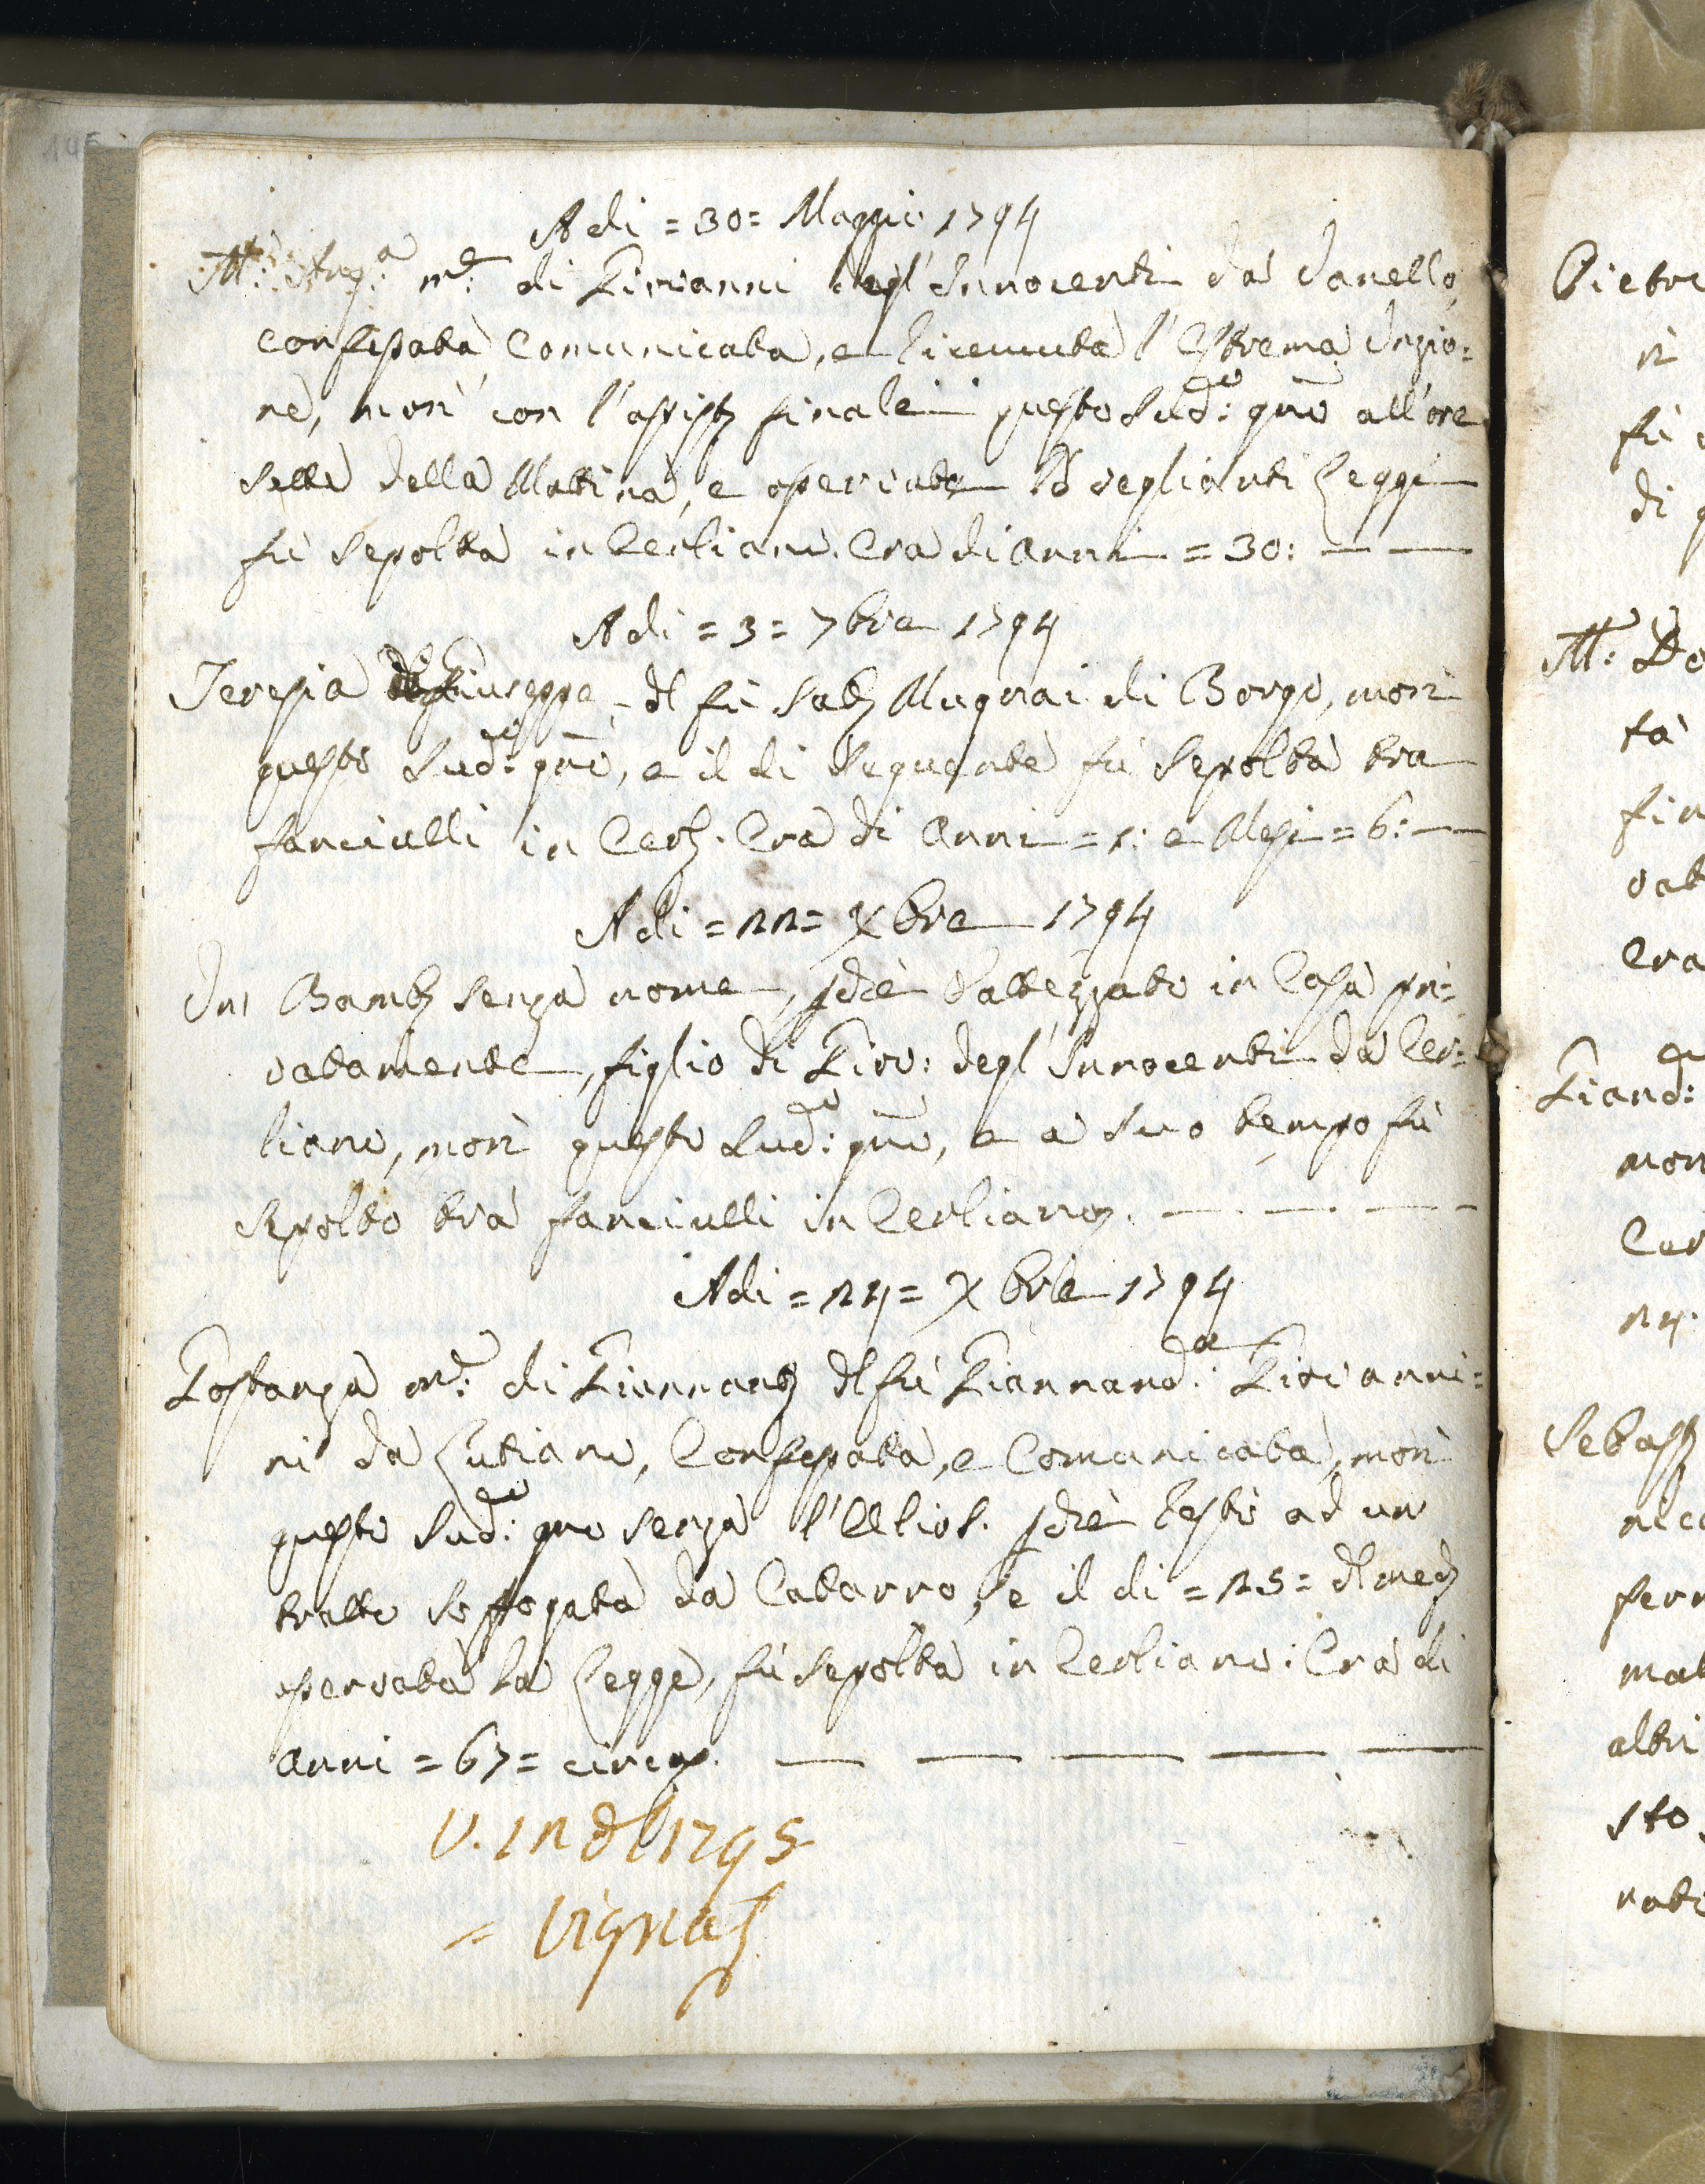 A di = 30 = Maggio 1794
M: Ang:ª m:e di Giovanni degl'Innocenti da Vanello,
confessata, Comunicata, e ricevuta l'Estrema Unzio=
ne, morì con l'assist finale questo Sud:o gno all'ore
sette della Mattina, e osservate le veglianti Leggi
fù sepolta in Cerliano. Era di anni = 30: — —
A di = 3 = 7bre 1794
Teresia di Giuseppe, dl fù Sab Mugnai di Borgo, morì
questo Sud:o gno, e il di seguente fù sepolta tra
fanciulli in Cerl. Era di anni = 1: e Mesi = 6: — —
A di = 22 = Xbre 1794
Un Bamb senza nome, pchè battezzato in Casa pri=
vatamente, figlio di Giov: degl'Innocenti da Cer=
liano, morì questo Sud:o gno, e a suo tempo fù
sepolto tra fanciulli in Cerliano. — — — —
A di = 24 = Xbre 1794
Costanza m:e di Giannant dl fù Giannand:a Giovanni=
ni da Lutiano, Confessata, e Comunicata, morì
questo Sud:o gno senza l'Olio S. pchè restò ad un
tratto soffogata da Catarro, e il di = 25 = dl med
osservata la Legge, fù sepolta in Cerliano: Era di
anni = 67 = circa. — — — — —
V. 12 dl 1795
= Vignal
Pietro
2
fù
di
M: Do
ta
fin
vat
Era
Giand:
mori
Cer
24.
Sebast
nico
ferm
mat
altri
sto
vati